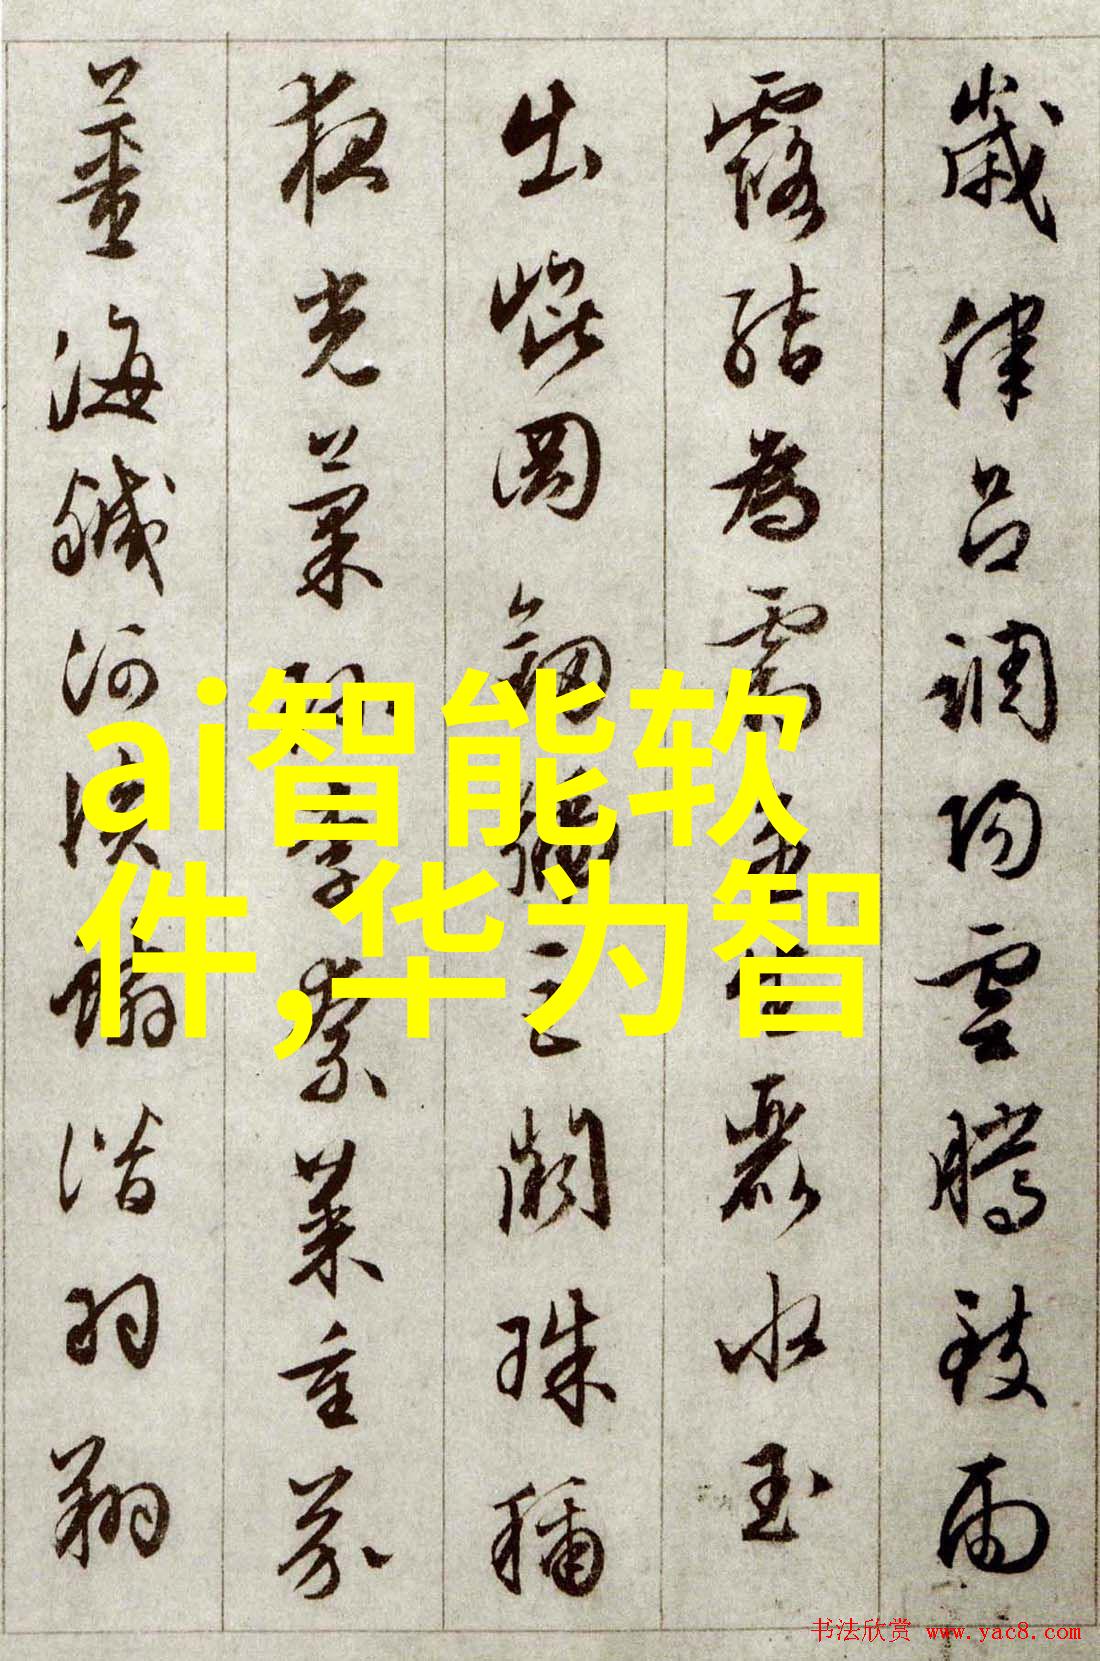 歲律呂調陽雲騰致雨
露結為霜金生麗水玉
出崐岡劍號巨闕珠稱
夜光菓珍李柰菜重芥
薑海鹹河淡鱗潛羽翔
ai智能软
件,华为智
书法欣赏 www.yac8.com